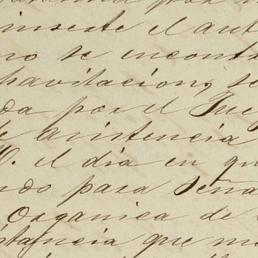 inserte el aut
no se encontr
havitacion, se
da por el Jue
e asistencia
O. el dia en qu
ndo para Seña
Organica de
stancia que m